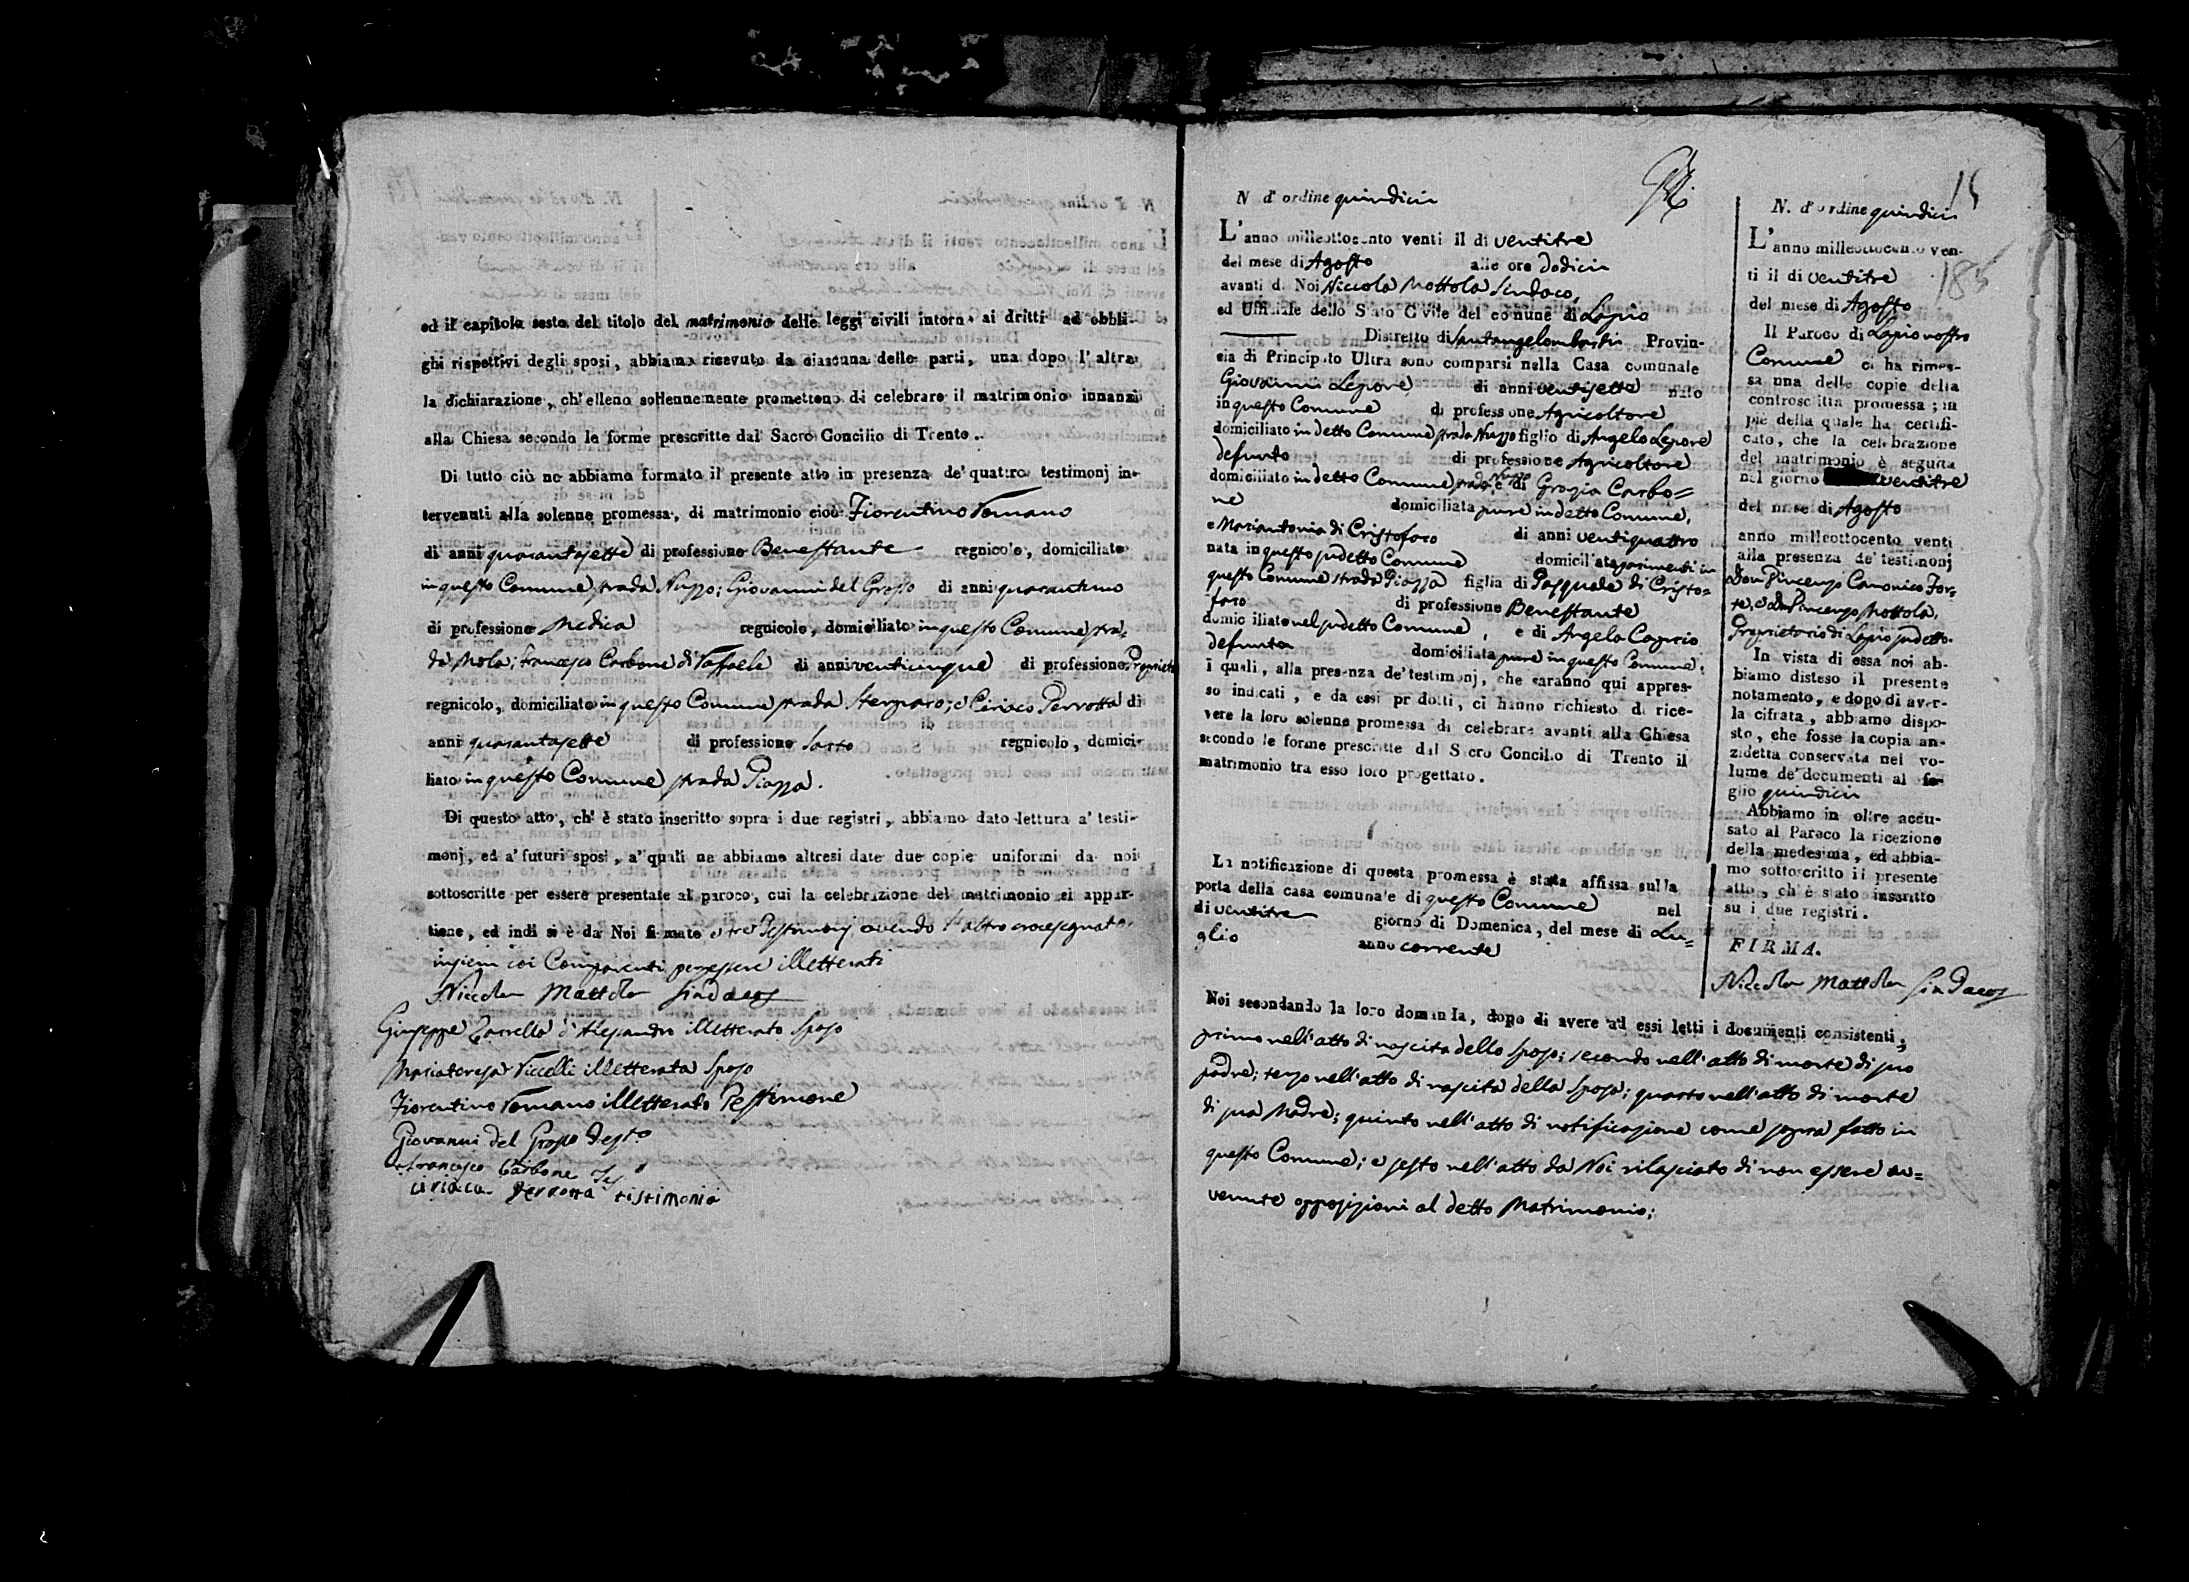 ed il capitolo sesto del titolo del matrimonio delle leggi civili intorno ai dritti ed obbli-
ghi rispettivi degli sposi, abbiamo ricevuto da ciascuna delle parti, una dopo l'altra
la dichiarazione, ch'elleno sollennemente promettono di celebrare il matrimonio innanzi
alla Chiesa secondo le forme prescritte dal Sacro Concilio di Trento.
Di tutto ciò ne abbiamo formato il presente atto in presenza de' quattro testimonj in-
tervenuti alla solenne promessa, di matrimonio cioè Fiorentino Romano
di anni quarantasette di professione Benestante regnicolo, domiciliato
in questo Comune strada Nuzzo; Giovanni del Grosso di anni quarantuno
di professione Medico regnicolo, domiciliato in questo Comune stra-
da Mola; Francesco Carbone di Raffaele di anni venticinque di professione Propriet
regnicolo, domiciliato in questo Comune strada e Ciriaco Perrotta di
anni quarantasette di professione Sarto regnicolo, domici-
liato in questo Comune strada Piazza.
Di questo atto, ch' è stato inscritto sopra i due registri, abbiamo dato lettura a' testi-
monj, ed a' futuri sposi, a' quali ne abbiamo altresì date due copie uniformi da noi
sottoscritte per essere presentate al paroco, cui la celebrazione del matrimonio si appar-
tiene, ed indi si è da Noi firmato e tre Testimonj avendo l'altro crocesegnato
insiem coi Comparenti per essere illetterati
Niccola Mottola Sindaco
Giuseppe Zarrella d'Alesandro illetterato Sposo
Mariateresa illetterata Sposa
Fiorentino Romano illetterato Testimone
Giovanni del Grosso Testo
Francesco Carbone Tes
ciriaco perrotta tistimonio
N d'ordine quindici
L'anno milleottocento venti il di ventitre
del mese di Agosto alle ore dodici
avanti di Noi Niccola Mottola Sindaco,
ed Uffiziale dello Stato Civile del comune di Lapio
Distretto di Santangelombardi Provin-
cia di Principato Ultra sono comparsi nella Casa comunale
Giovanni Lepore di anni ventisette nato
in questo Comune di professione Agricoltore
domiciliato in detto Comune strada Nuzzo figlio di Angelo Lepore
defunto di professione Agricoltore
domiciliato in detto Comune strada Nuzzo e di Grazia Carbo=
ne domiciliata pure in detto Comune,
e Mariantonia di Cristofaro di anni ventiquattro
nata in questo sudetto Comune domiciliata parimenti in
questo Comune strada Piazza figlia di Pasquale di Cristo=
faro di professione Benestante
domiciliato nel sudetto Comune, e di Angela Caprio
defunta domiciliata pure in questo Comune,
i quali, alla presenza de' testimonj, che saranno qui appres-
so indicati, e da essi prodotti, ci hanno richiesto di rice-
vere la loro solenne promessa di celebrare avanti alla Chiesa
secondo le forme prescritte dal Sacro Concilio di Trento il
matrimonio tra esso loro progettato.
La notificazione di questa promessa è stata affissa sulla
porta della casa comunale di questo Comune nel
dì ventitre giorno di Domenica, del mese di Lu=
glio anno corrente
Noi secondando la loro domanda, dopo di avere ad essi letti i documenti consistenti,
primo nell'atto di nascita dello sposo; secondo nell'atto di morte di suo
padre; terzo nell'atto di nascita della sposa; quarto nell'atto di morte
di sua Madre; quinto nell'atto di notificazione come sopra fatto in
questo Comune; e sesto nell'atto da Noi rilasciato di non essere av=
venute opposizioni al detto Matrimonio;
15
N. d'ordine quindici
L'anno milleottocento ven-
ti il di ventitre
185
del mese di Agosto
Il Paroco di Lapio nostro
Comune ci ha rimes-
sa una delle copie della
controscritta promessa; in
piè della quale ha certifi-
cato, che la celebrazione
del matrimonio è seguita
nel giorno ventitre
del mese di Agosto
anno milleottocento venti
alla presenza de' testimonj
Don Vincenzo Canonico For-
te, e Dn Vincenzo Mottola,
Proprietario di Lapio sudetto.
In vista di essa noi ab-
biamo disteso il presente
notamento, e dopo di aver-
la cifrata, abbiamo dispo-
sto, che fosse la copia an-
zidetta conservata nel vo-
lume de' documenti al fo-
glio quindici
Abbiamo in oltre accu-
sato al Paroco la ricezione
della medesima, ed abbia-
mo sottoscritto il presente
atto, ch' è stato inscritto
su i due registri.
FIRMA.
Niccola Mottola Sindaco